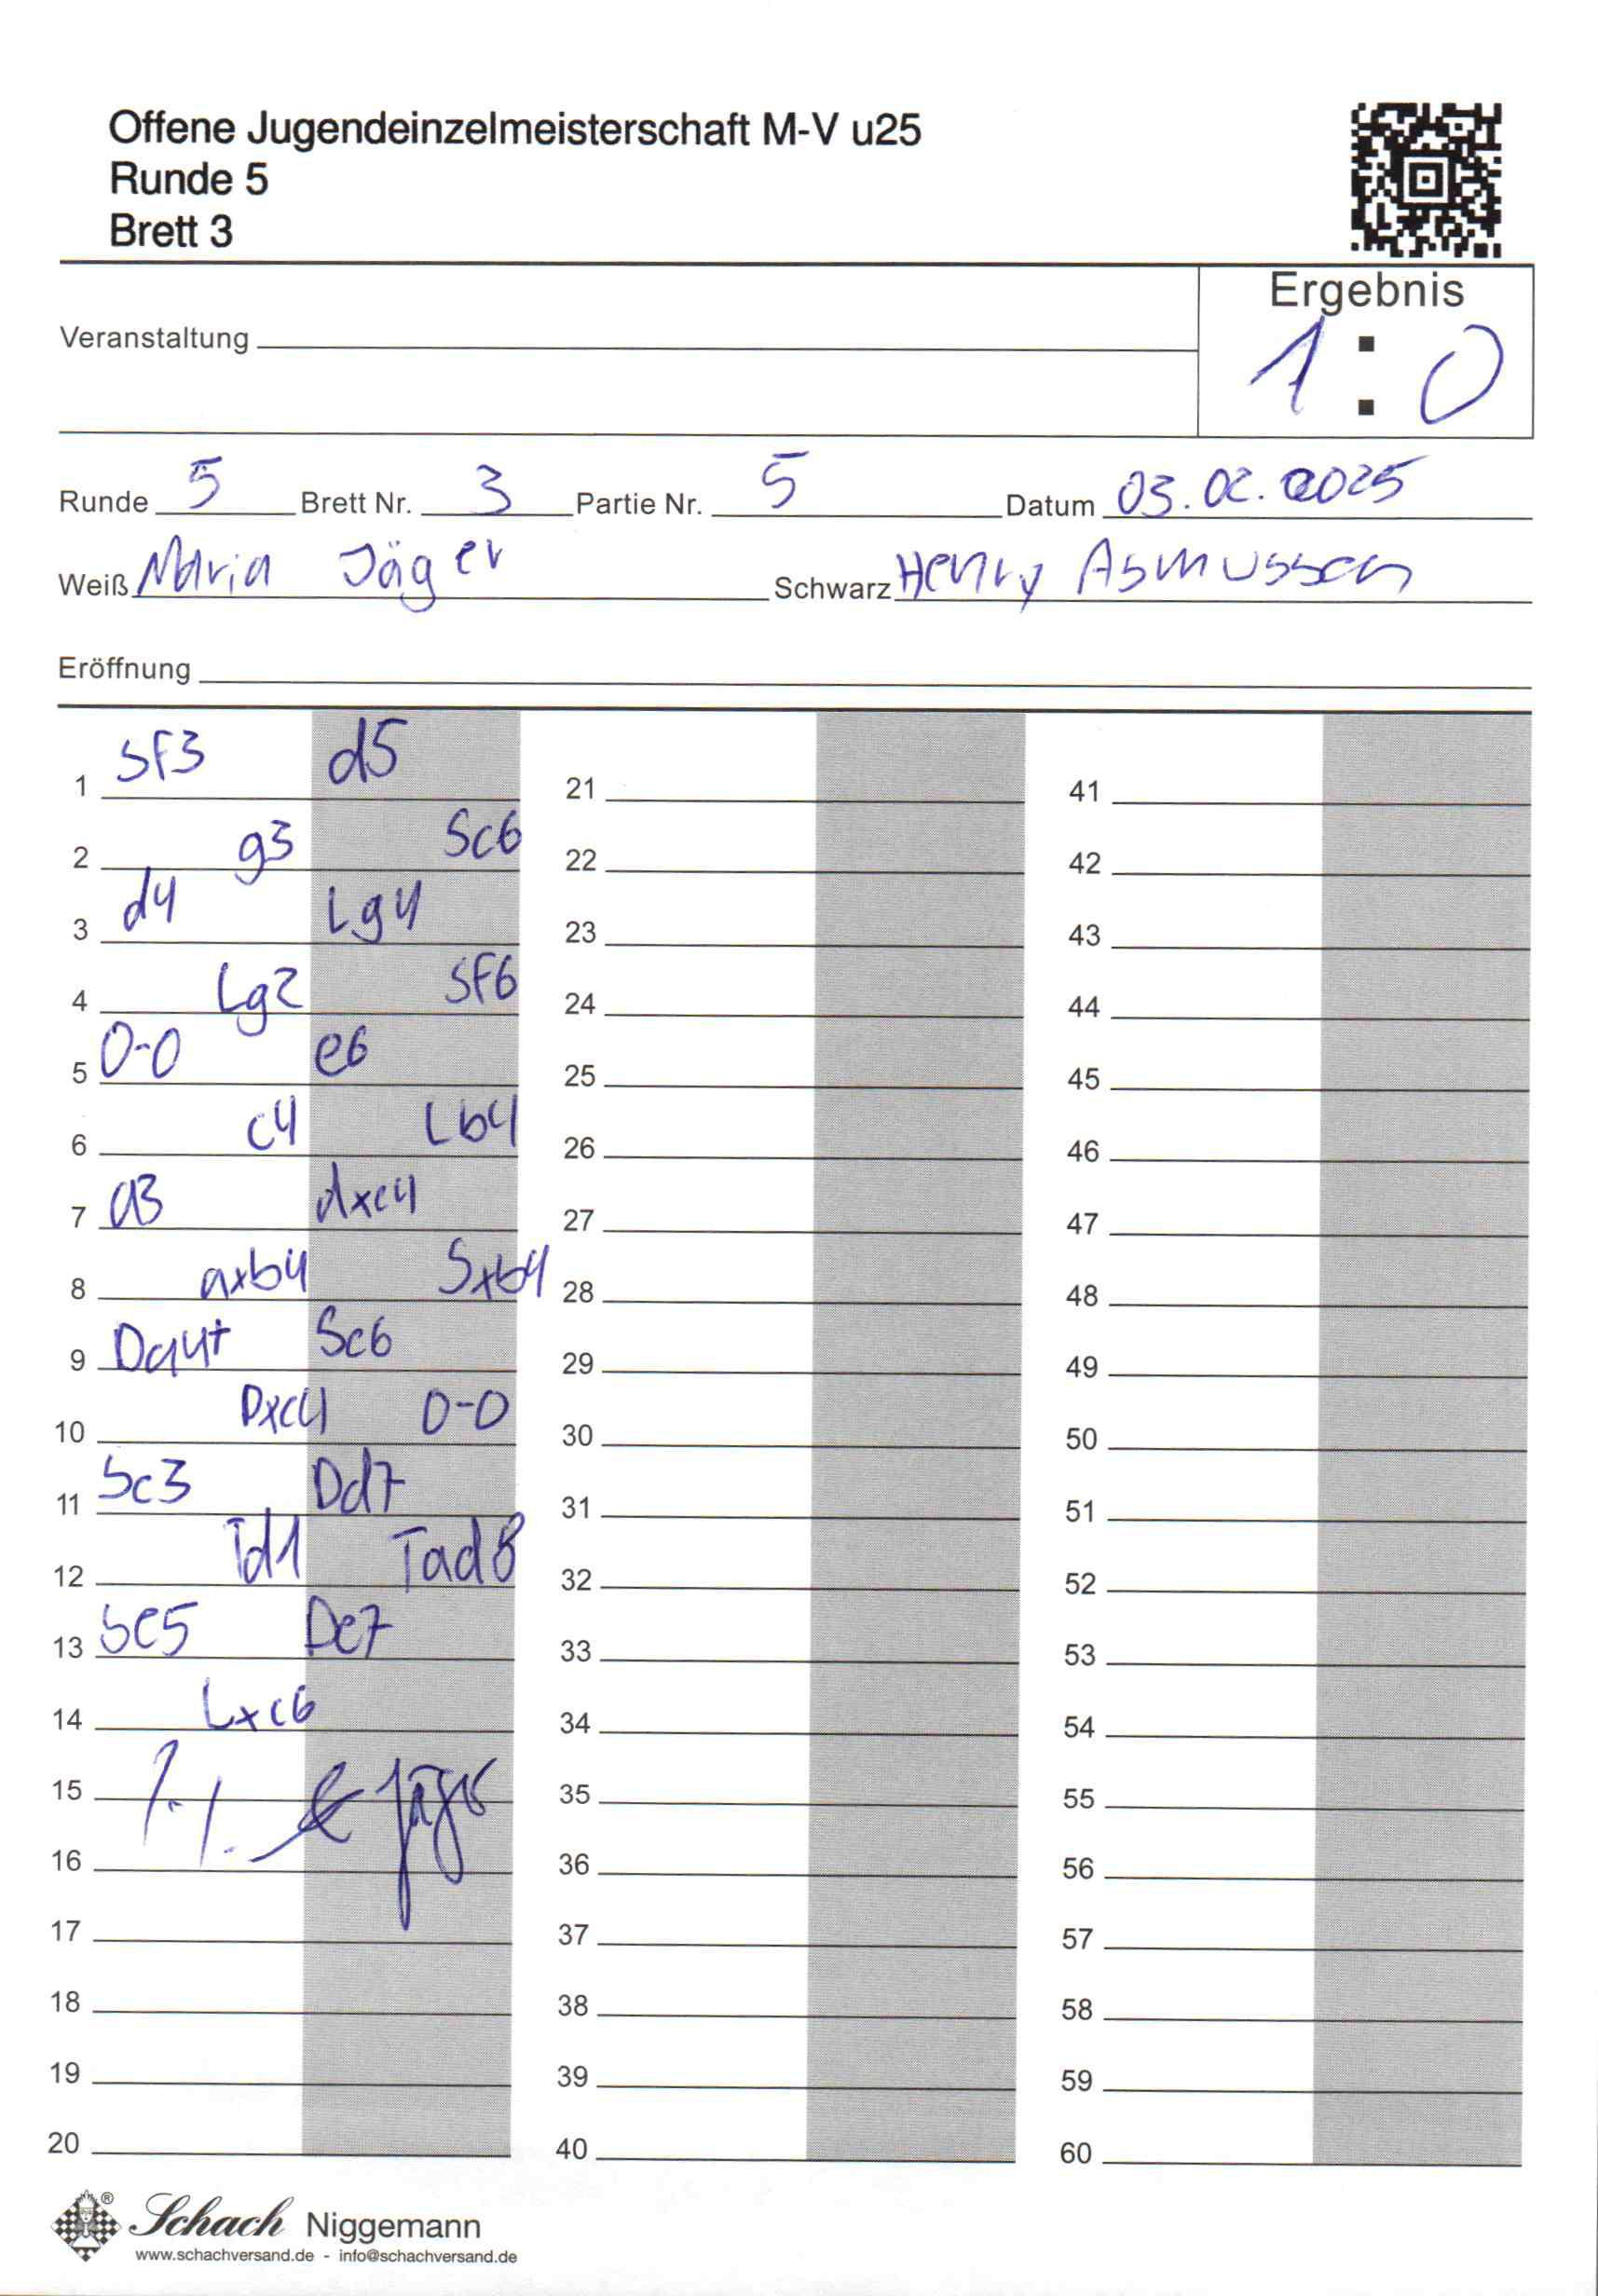 Offene Jugendeinzelmeisterschaft M-V u25
Runde 5
Brett 3
Ergebnis
1 : 0
Veranstaltung
Runde 5 Brett Nr. 3 Partie Nr. 5 Datum 03.02.2025
Weiß Maria Jäger Schwarz Henry Asmussen
Eröffnung
1 Sf3 d5 21 41
2 g3 Sc6 22 42
3 d4 Lg4 23 43
4 Lg2 Sf6 24 44
5 0-0 e6 25 45
6 c4 Lb4 26 46
7 a3 dxc4 27 47
8 axb4 Sxb4 28 48
9 Da4+ Sc6 29 49
10 Dxc4 0-0 30 50
11 Sc3 Dd7 31 51
12 Td1 Tad8 32 52
13 Se5 De7 33 53
14 Lxc6 34 54
15 Jäger 35 55
16 36 56
17 37 57
18 38 58
19 39 59
20 40 60
Schach Niggemann
www.schachversand.de - info@schachversand.de